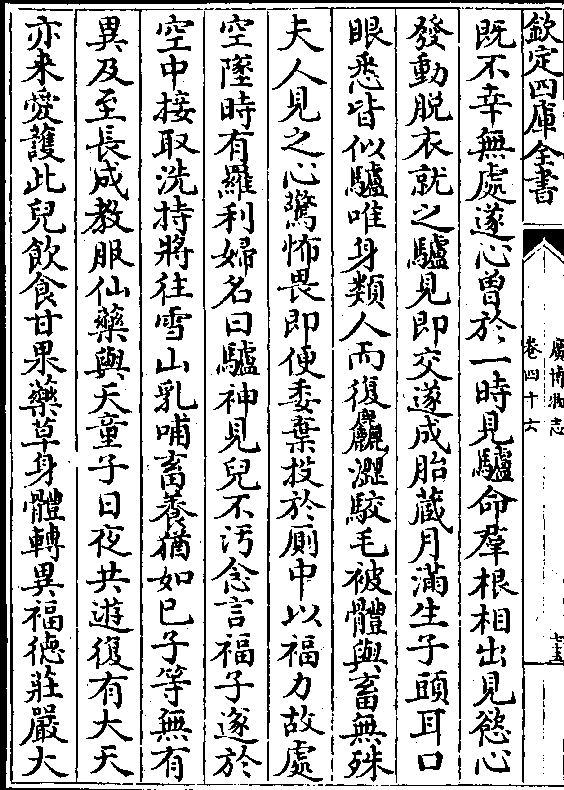 欽定四庫全書
廣博物志
卷四十六
既不幸無處遂心曽於一時見驢命羣根相出見慾心
發動脱衣就之驢見即交遂成胎藏月滿生子頭耳口
眼悉皆似驢唯身類人而復麤澀駮毛被體與畜無殊
夫人見之心驚怖畏即便委棄投於厠中以福力故處
空墜時有羅利婦名曰驢神見兒不汚念言福子遂於
空中接取洗持將往雪山乳哺畜養猶如已子等無有
異及至長成教服仙藥與天童子日夜共遊復有大天
亦来愛護此兒飲食甘果藥草身體轉異福徳莊嚴大